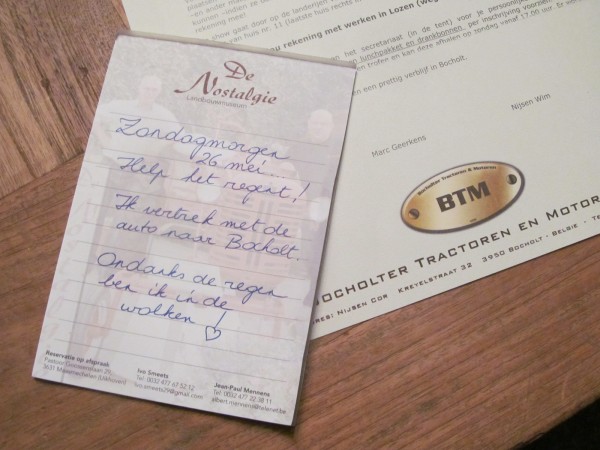 De
Nostalgie
Landbouwmuseum
Zondagmorgen
26 mei...
Help het regent!
Ik vertrek met de
auto naar Bocholt.
Ondanks de regen
ben ik in de
wolken!
Reservatie op afspraak
Ivo Smeets
Tel: 0032 477 67 52 12
ivo.smeets29@gmail.com
Jean-Paul Mennens
Tel: 0032 477 22 38 11
albert.mennens@telenet.be
rekening met werken in Lozen
het secretariaat (in de tent) voor je
lunchpakket en drankbonnen, per inschrijving
een prettig verblijf in Bocholt.
Nijsen Wim
Marc Geerkens
Bocholter Tractoren & Motoren
BTM
BOCHOLTER TRACTOREN EN MOTOR
Nijsen Cor Krevelstraat 32 3950 Bocholt - Belgie - Te